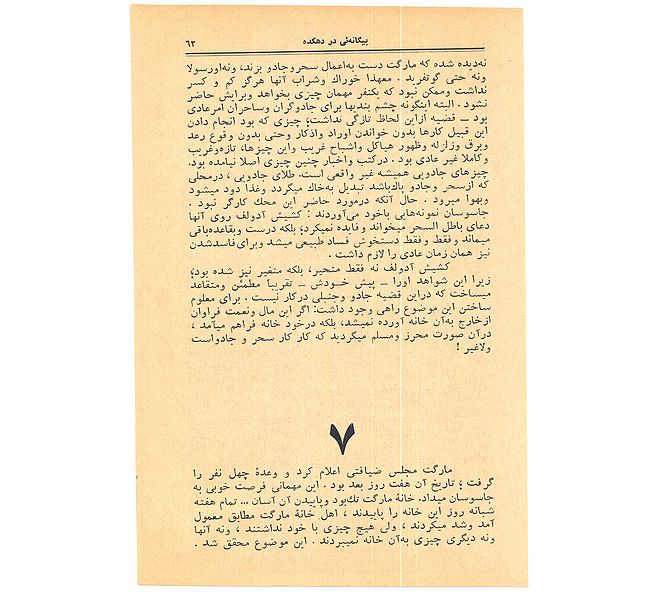 بیگانه‌ئی در دهکده
۶۳
نه‌دیده شده که مارگت دست به‌اعمال سحروجادو بزند، ونه‌اورسولا
ونه حتی گوتفرید . معهذا خوراك وشراب آنها هرگز کم و کسر
نداشت وممکن نبود که یکنفر مهمان چیزی بخواهد وبرایش حاضر
نشود . البته اینگونه چشم بندیها برای جادوگران وساحران امرعادی
بود ــ قضیه ازاین لحاظ تازگی نداشت؛ چیزی که بود انجام دادن
این قبیل کارها بدون خواندن اوراد واذکار وحتی بدون وقوع رعد
وبرق وزلزله وظهور هیاکل واشباح غریب واین چیزها، تازه‌وغریب
وکاملا غیر عادی بود . درکتب واخبار چنین چیزی اصلا نیامده بود.
چیزهای جادویی همیشه غیر واقعی است. طلای جادویی ، درمحلی
که ازسحر وجادو پاك‌باشد تبدیل به‌خاك میگردد وغذا دود میشود
وبهوا میرود . حال آنکه درمورد حاضر این محك کارگر نبود .
جاسوسان نمونه‌هایی باخود می‌آوردند : کشیش آدولف روی آنها
دعای باطل السحر میخواند وفایده نمیکرد؛ بلکه درست وبقاعده‌باقی
میماند و فقط و فقط دستخوش فساد طبیعی میشد وبرای‌فاسدشدن
نیز همان زمان عادی را لازم داشت .
کشیش آدولف نه فقط متحیر، بلکه متغیر نیز شده بود؛
زیرا این شواهد اورا ــ پیش خودش ــ تقریباً مطمئن ومتقاعد
میساخت که دراین قضیه جادو وجنبلی درکار نیست . برای معلوم
ساختن این موضوع راهی وجود داشت: اگر این مال ونعمت فراوان
ازخارج به‌آن خانه آورده نمیشد، بلکه درخود خانه فراهم میآمد ،
درآن صورت محرز ومسلم میگردید که کار کار سحر و جادواست
ولاغیر !
۷
مارگت مجلس ضیافتی اعلام کرد و وعدهٔ چهل نفر را
گرفت ؛ تاریخ آن هفت روز بعد بود . این مهمانی فرصت خوبی به
جاسوسان میداد. خانهٔ مارگت تك‌بود وپاییدن آن آسان ... تمام هفته
شبانه روز این خانه را پاییدند ، اهل خانهٔ مارگت مطابق معمول
آمد وشد میکردند ، ولی هیچ چیزی با خود نداشتند ، ونه آنها
ونه دیگری چیزی به‌آن خانه نمیبردند . این موضوع محقق شد .